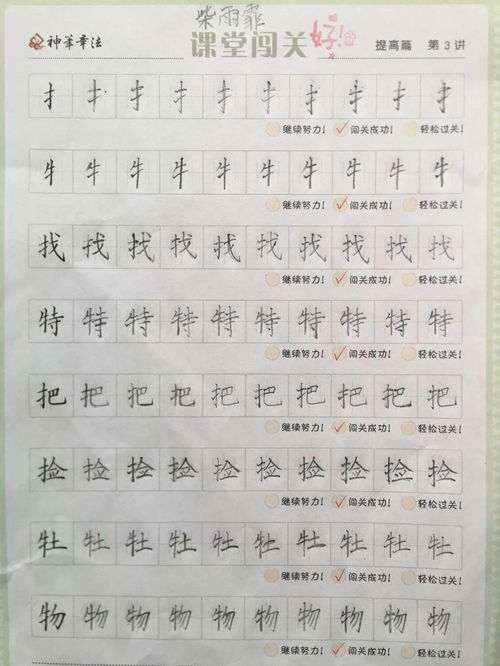 柴雨霏
神笔章法 课堂闯关 好! 提高篇 第3讲
扌 扌 扌 扌 扌 扌 扌 扌 扌 扌
继续努力! 闯关成功! 轻松过关!
牜 牜 牜 牜 牜 牜 牜 牜 牜 牜
继续努力! 闯关成功! 轻松过关!
找 找 找 找 找 找 找 找 找 找
继续努力! 闯关成功! 轻松过关!
特 特 特 特 特 特 特 特 特 特
继续努力! 闯关成功! 轻松过关!
把 把 把 把 把 把 把 把 把 把
继续努力! 闯关成功! 轻松过关!
捡 捡 捡 捡 捡 捡 捡 捡 捡 捡
继续努力! 闯关成功! 轻松过关!
牡 牡 牡 牡 牡 牡 牡 牡 牡 牡
继续努力! 闯关成功! 轻松过关!
物 物 物 物 物 物 物 物 物 物
继续努力! 闯关成功! 轻松过关!